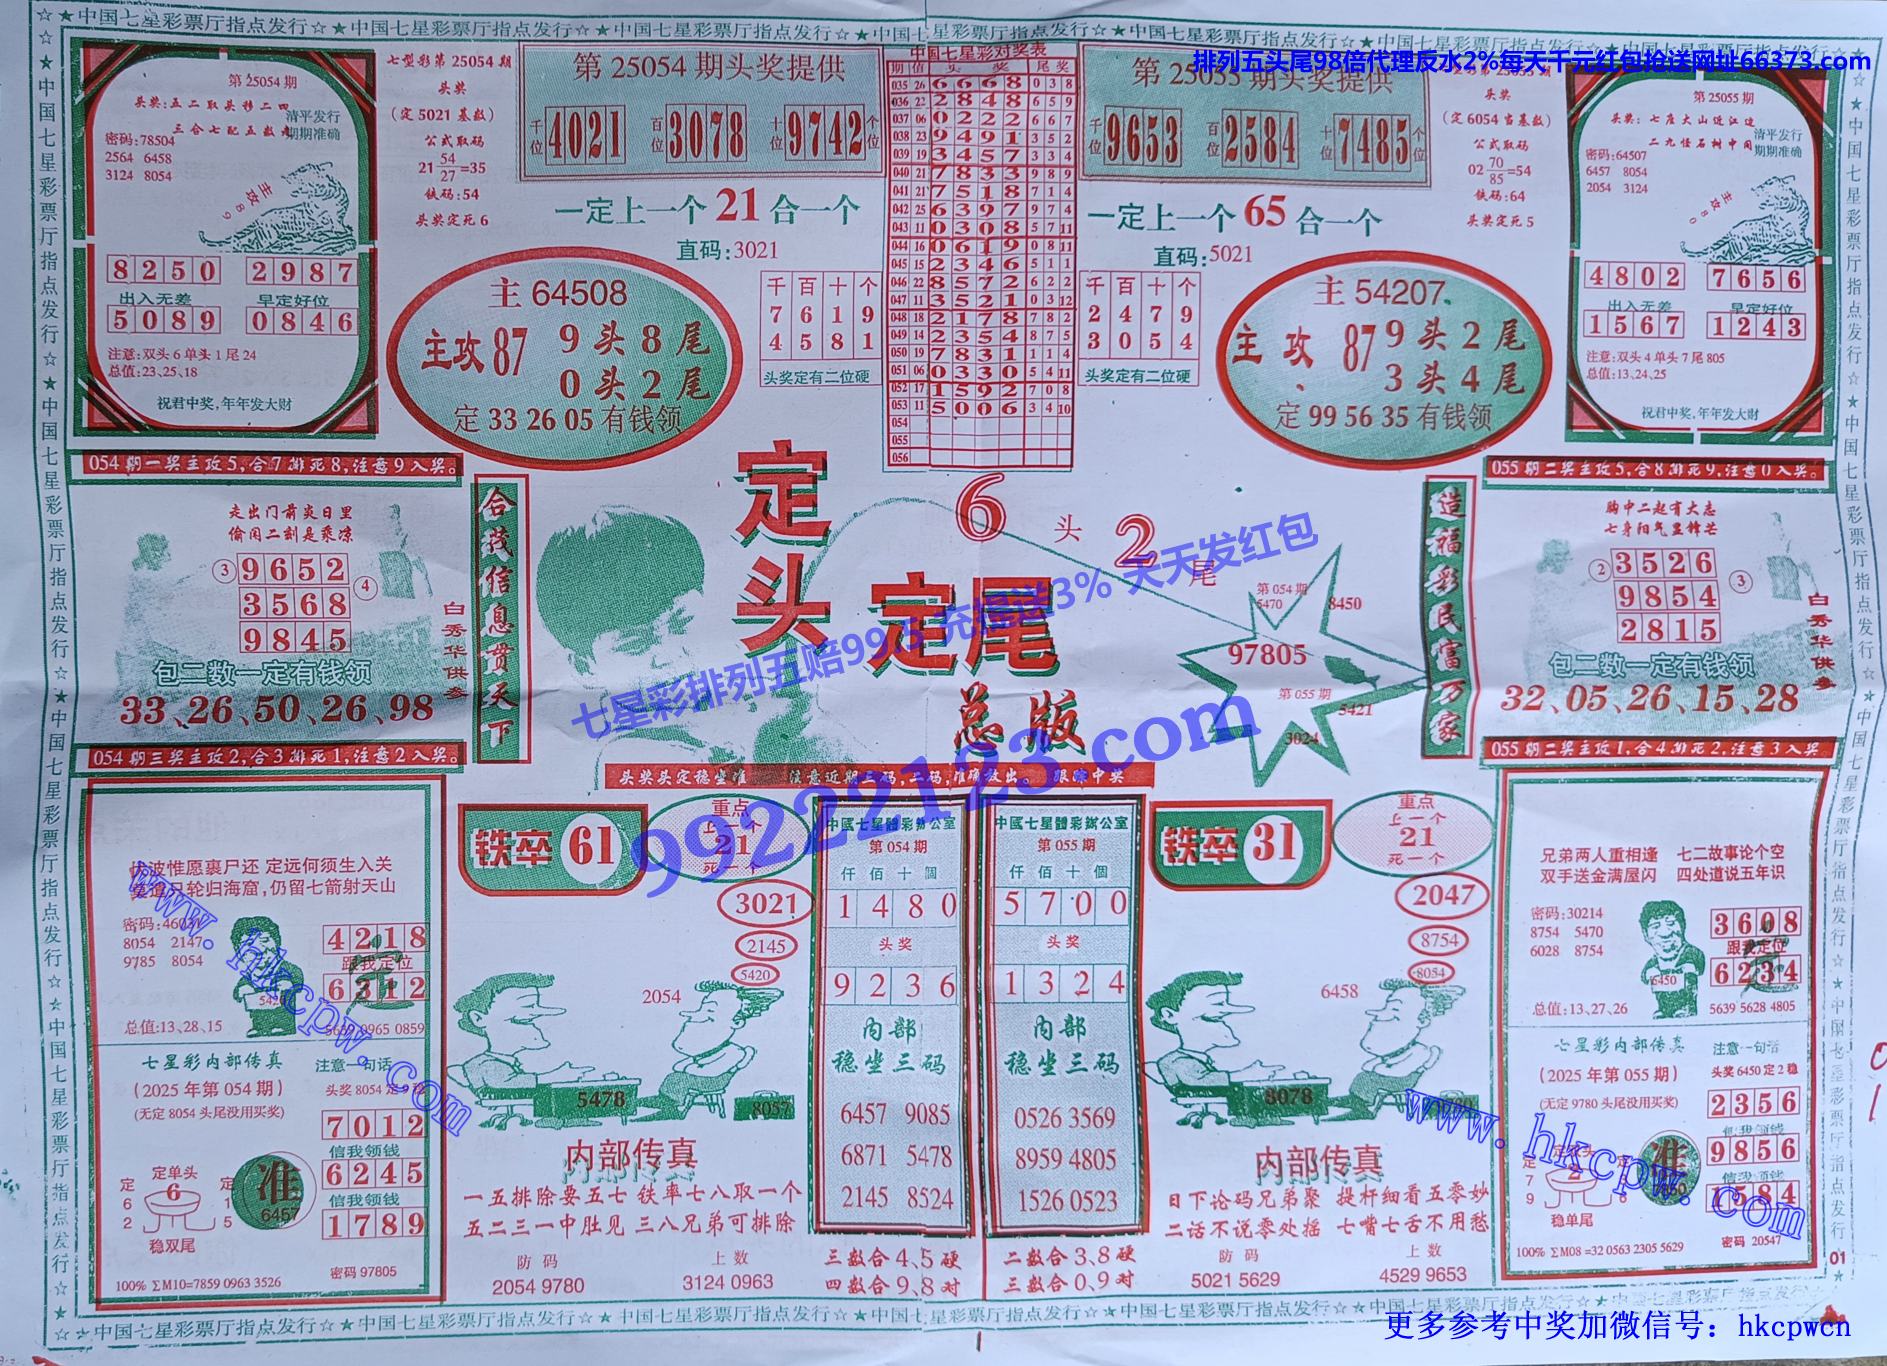 ☆★中国七星彩票厅指点发行☆★中国七星彩票厅指点发行☆★中国七星彩票厅指点发行☆
排列五头尾98倍代理反水2%每天千元红包抢送网址66373.com
第25054期
头奖:五二取头移二四
三合七配五数
清平发行
期期准确
密码:78504
2564 6458
3124 8054
主攻89
8250 2987
出入无差 早定好位
5089 0846
注意:双头6单头1尾24
总值:23、25、18
祝君中奖,年年发大财
七型彩第25054期
头奖
(定5021基数)
公式取码
21 54/27 =35
铁码:54
头奖定死6
第25054期头奖提供
千位 4021 百位 3078 十位 9742 个位
一定上一个21合一个
直码:3021
主64508
主攻87 9头8尾
0头2尾
定 33 26 05 有钱领
千百十个
7619
4581
头奖定有二位硬
中国七星彩对奖表
期 值 头奖 尾奖
035 26 6668 038
036 22 2848 659
037 06 0222 667
038 23 9491 352
039 19 3457 334
040 21 7833 989
041 21 7518 714
042 25 6397 974
043 11 0308 5711
044 16 0619 0811
045 15 2346 511
046 22 8572 622
047 11 3521 0312
048 18 2178 782
049 14 2354 875
050 19 7831 114
051 06 0330 5411
052 17 1592 708
053 11 5006 3410
054
055
056
第25055期头奖提供
千位 9653 百位 2584 十位 7485 个位
一定上一个65合一个
直码:5021
千百十个
2479
3054
头奖定有二位硬
主54207
主攻87 9头2尾
3头4尾
定 99 56 35 有钱领
头奖
(定6054当基数)
公式取码
02 70/85 =54
铁码:64
头奖定死5
第25055期
头奖:七座大山近江边
二九怪石树中间
清平发行
期期准确
密码:64507
6457 8054
2054 3124
主攻80
4802 7656
出入无差 早定好位
1567 1243
注意:双头4单头7尾805
总值:13、24、25
祝君中奖,年年发大财
054期一奖主攻5,合7排死8,注意9入奖。
走出门前炎日里
偷闲二刻是乘凉
③ 9652 ④
3568
9845
白秀华供参
包二数一定有钱领
33、26、50、26、98
054期三奖主攻2,合3排死1,注意2入奖。
合茂信息贯天下
定头定尾
6头2尾
总版
第054期
5470
8450
97805
第055期
5421
3024
七星彩排列五赔99.5 充提送3% 天天发红包
99222123.com
头奖头定稳坐准 注意近期三码,二码,准确放出。 跟踪中奖
造福彩民富万家
055期二奖主攻5,合8排死9,注意0入奖。
胸中二起有大志
七身阳气显锋芒
② 3526 ③
9854
2815
白秀华供参
包二数一定有钱领
32、05、26、15、28
055期二奖主攻1,合4排死2,注意3入奖。
伏波惟愿裹尸还 定远何须生入关
莫遣只轮归海窟,仍留七箭射天山
密码:46031
8054 2147
9785 8054
4218
跟我定位
6312
总值:13、28、15
5639 9965 0859
七星彩内部传真
(2025年第054期)
(无定8054头尾没用买奖)
注意一句话
7012
信我领钱
6245
信我领钱
1789
定单头
6
定62
定15
稳双尾
准
6457
100% ΣM10=7859 0963 3526
密码 97805
www.hkcpw.com
铁卒 61
重点
上一个
21
死一个
3021
2145
5420
2054
5478
8057
内部传真
一五排除要五七 铁率七八取一个
五二三一中肚见 三八兄弟可排除
防码 上数
2054 9780 3124 0963
中國七星體彩辦公室
第054期
仟佰十個
1480
头奖
9236
内部
稳坐三码
6457 9085
6871 5478
2145 8524
三数合4、5硬
四数合9、8对
中國七星體彩辦公室
第055期
仟佰十個
5700
头奖
1324
内部
稳坐三码
0526 3569
8959 4805
1526 0523
二数合3、8硬
三数合0、9对
铁卒 31
重点
上一个
21
死一个
2047
8754
8054
6458
8078
内部传真
日下论码兄弟聚 提杆细看五零妙
二话不说零处摇 七嘴七舌不用愁
防码 上数
5021 5629 4529 9653
兄弟两人重相逢 七二故事论个空
双手送金满屋闪 四处道说五年识
密码:30214
8754 5470
6028 8754
6450
3608
跟我定位
6234
总值:13、27、26
5639 5628 4805
七星彩内部传真
(2025年第055期)
(无定9780头尾没用买奖)
注意一句话
头奖6450定2稳
2356
信我领钱
9856
信我领钱
1584
定79
稳单尾
准
100% ΣM08 =32 0563 2305 5629
密码 20547
www.hkcpw.com
01
☆★中国七星彩票厅指点发行☆★中国七星彩票厅指点发行☆★中国七星彩票厅指点发行☆
更多参考中奖加微信号：hkcpwcn